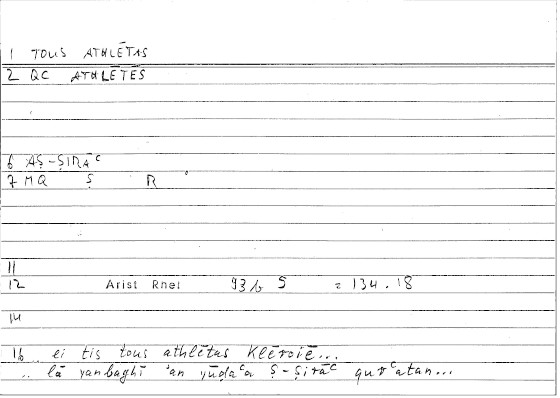 1 TOUS ATHLĒTAS
2 QC ATHLĒTĒS
6 AṢ-ṢIRĀᶜ
7 MQ Ṣ R ᶜ
11
12 Arist Rhet 93b 5 = 134.18
14
16 .. ei tis tous athlētas klēroiē...
.. lā yanbaghī 'an yūḍaᶜa ṣ-ṣirāᶜ qurᶜatan...